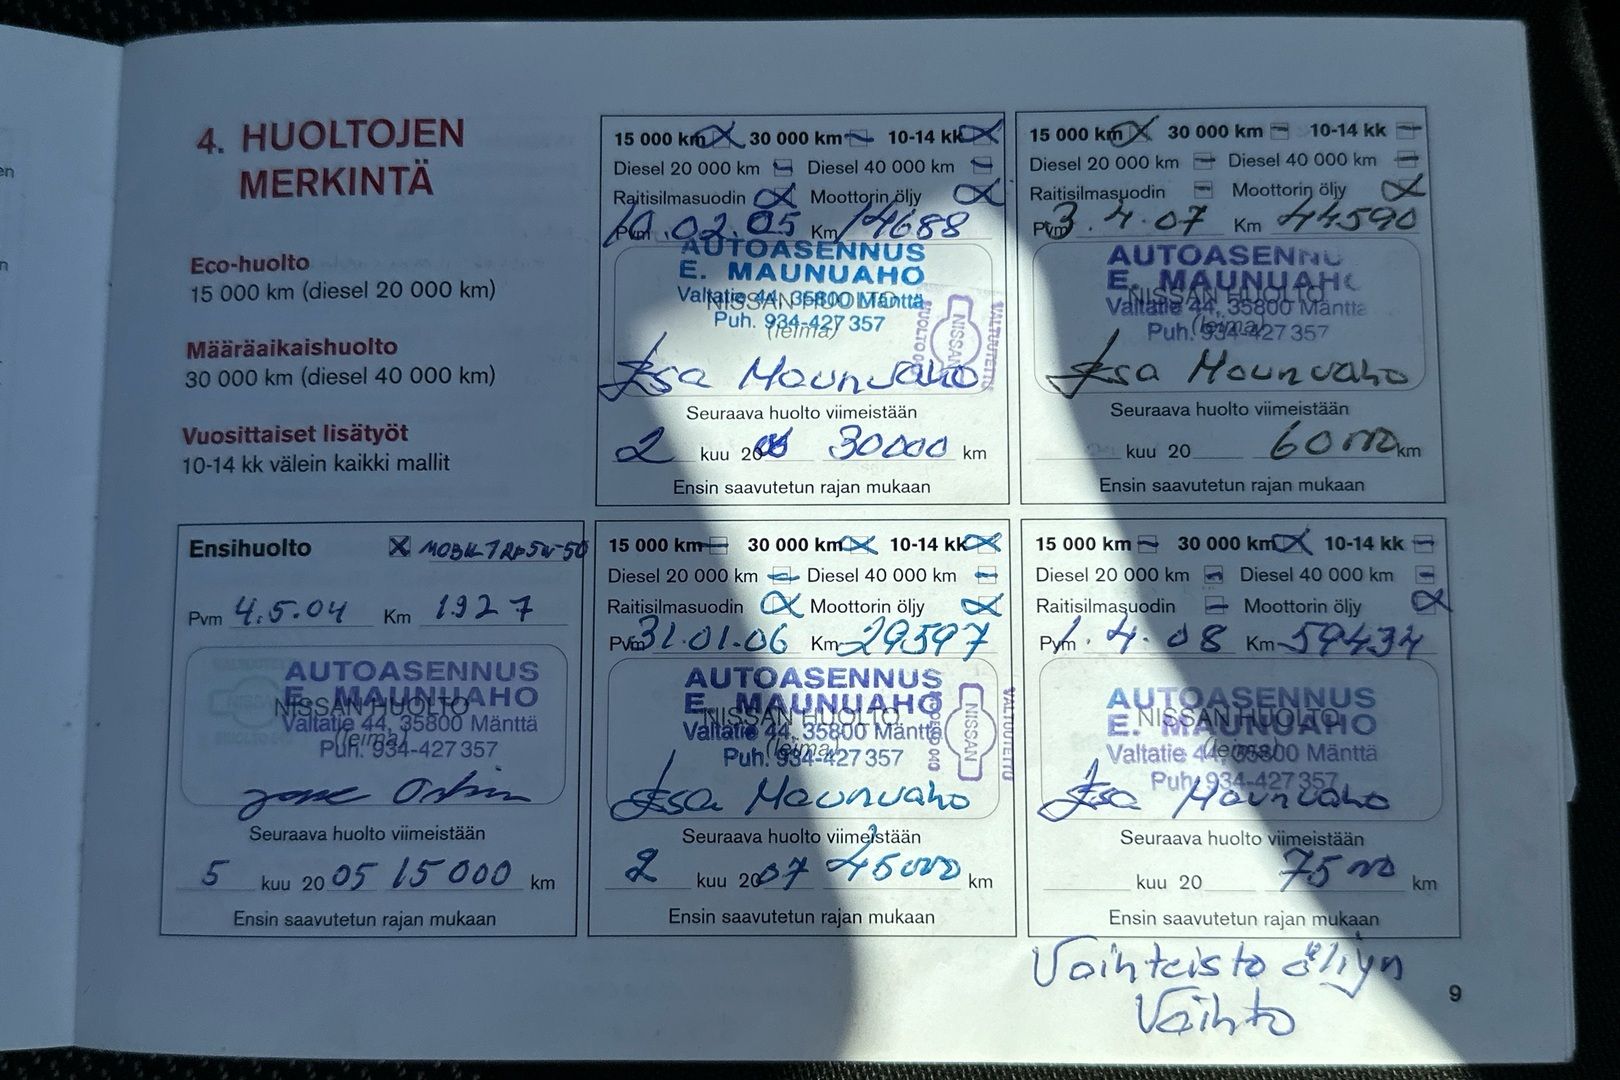 4. HUOLTOJEN
MERKINTÄ
Eco-huolto
15 000 km (diesel 20 000 km)
Määräaikaishuolto
30 000 km (diesel 40 000 km)
Vuosittaiset lisätyöt
10-14 kk välein kaikki mallit
15 000 km 30 000 km 10-14 kk
Diesel 20 000 km Diesel 40 000 km
Raitisilmasuodin Moottorin öljy
Pvm 10.02.05 Km 14688
AUTOASENNUS
E. MAUNUAHO
NISSAN HUOLTO
Valtatie 44, 35800 Mänttä
Puh. 934-427 357
(leima)
VALTUUTETTU
NISSAN
HUOLTO 040
Esa Maunuaho
Seuraava huolto viimeistään
2 kuu 2006 30000 km
Ensin saavutetun rajan mukaan
15 000 km 30 000 km 10-14 kk
Diesel 20 000 km Diesel 40 000 km
Raitisilmasuodin Moottorin öljy
Pvm 3.4.07 Km 44590
AUTOASENNU
E. MAUNUAHO
NISSAN HUOLTO
Valtatie 44, 35800 Mänttä
Puh. 934-427 357
(leima)
Esa Maunuaho
Seuraava huolto viimeistään
kuu 20 60000 km
Ensin saavutetun rajan mukaan
Ensihuolto MOBIL 1 5W-50
Pvm 4.5.04 Km 1927
AUTOASENNUS
E. MAUNUAHO
NISSAN HUOLTO
Valtatie 44, 35800 Mänttä
Puh. 934-427 357
(leima)
Seuraava huolto viimeistään
5 kuu 2005 15000 km
Ensin saavutetun rajan mukaan
15 000 km 30 000 km 10-14 kk
Diesel 20 000 km Diesel 40 000 km
Raitisilmasuodin Moottorin öljy
Pvm 31.01.06 Km 29597
AUTOASENNUS
E. MAUNUAHO
NISSAN HUOLTO
Valtatie 44, 35800 Mänttä
Puh. 934-427 357
(leima)
VALTUUTETTU
NISSAN
040
Esa Maunuaho
Seuraava huolto viimeistään
2 kuu 2007 45000 km
Ensin saavutetun rajan mukaan
15 000 km 30 000 km 10-14 kk
Diesel 20 000 km Diesel 40 000 km
Raitisilmasuodin Moottorin öljy
Pvm 1.4.08 Km 59434
AUTOASENNUS
E. MAUNUAHO
NISSAN HUOLTO
Valtatie 44, 35800 Mänttä
Puh. 934-427 357
(leima)
Esa Maunuaho
Seuraava huolto viimeistään
kuu 20 75000 km
Ensin saavutetun rajan mukaan
Vaihteisto öljyn
Vaihto
9